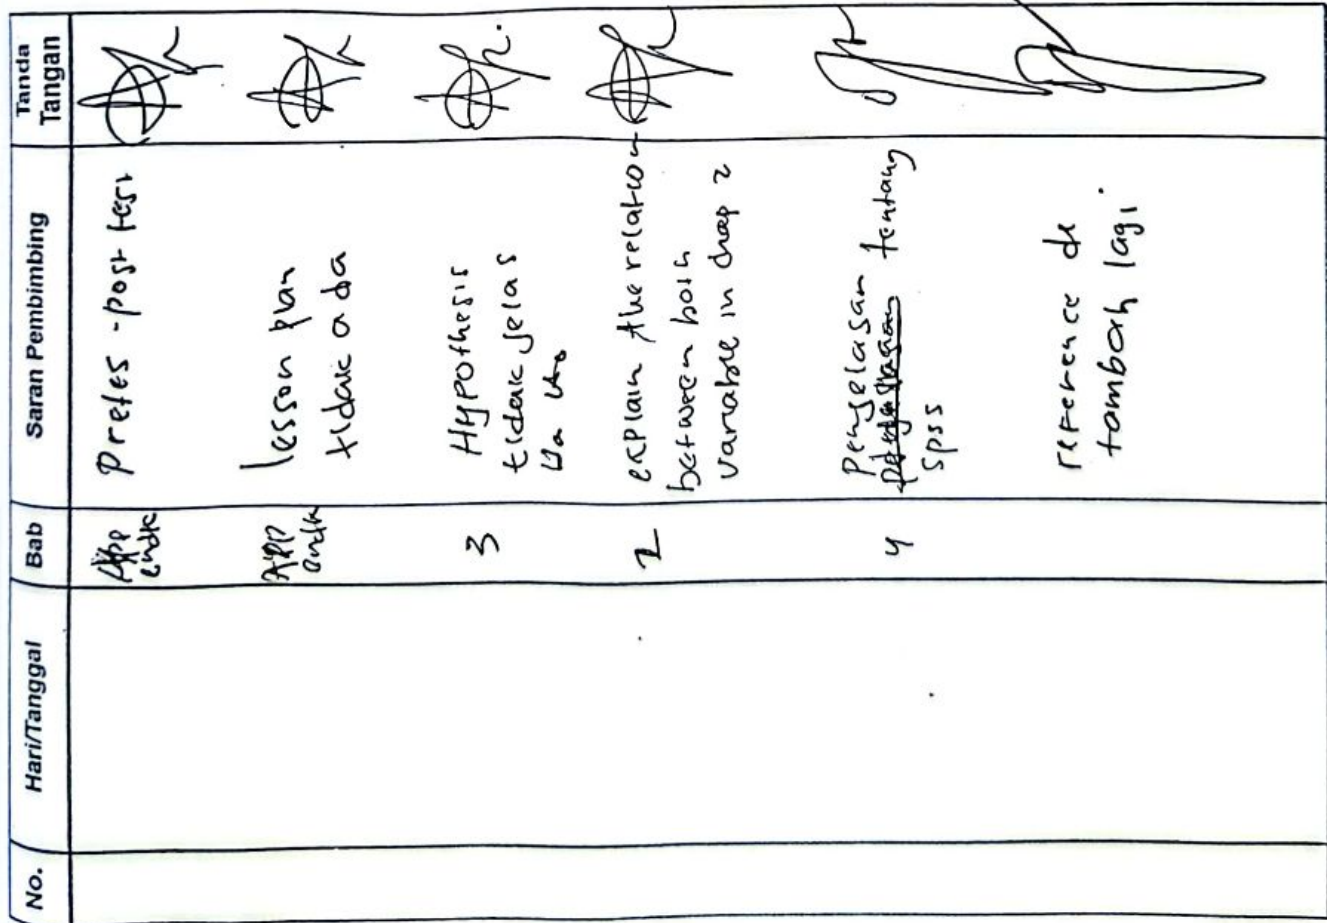 No. Hari/Tanggal Bab Saran Pembimbing Tanda Tangan
App endk Pretes - post test
APP endk lesson plan
tidak ada
3 Hypothesis
tidak jelas
Ha Ho
2 explain the relation
between both
variable in chap 2
4 Penjelasan tentang
spss
reference di
tambah lagi.